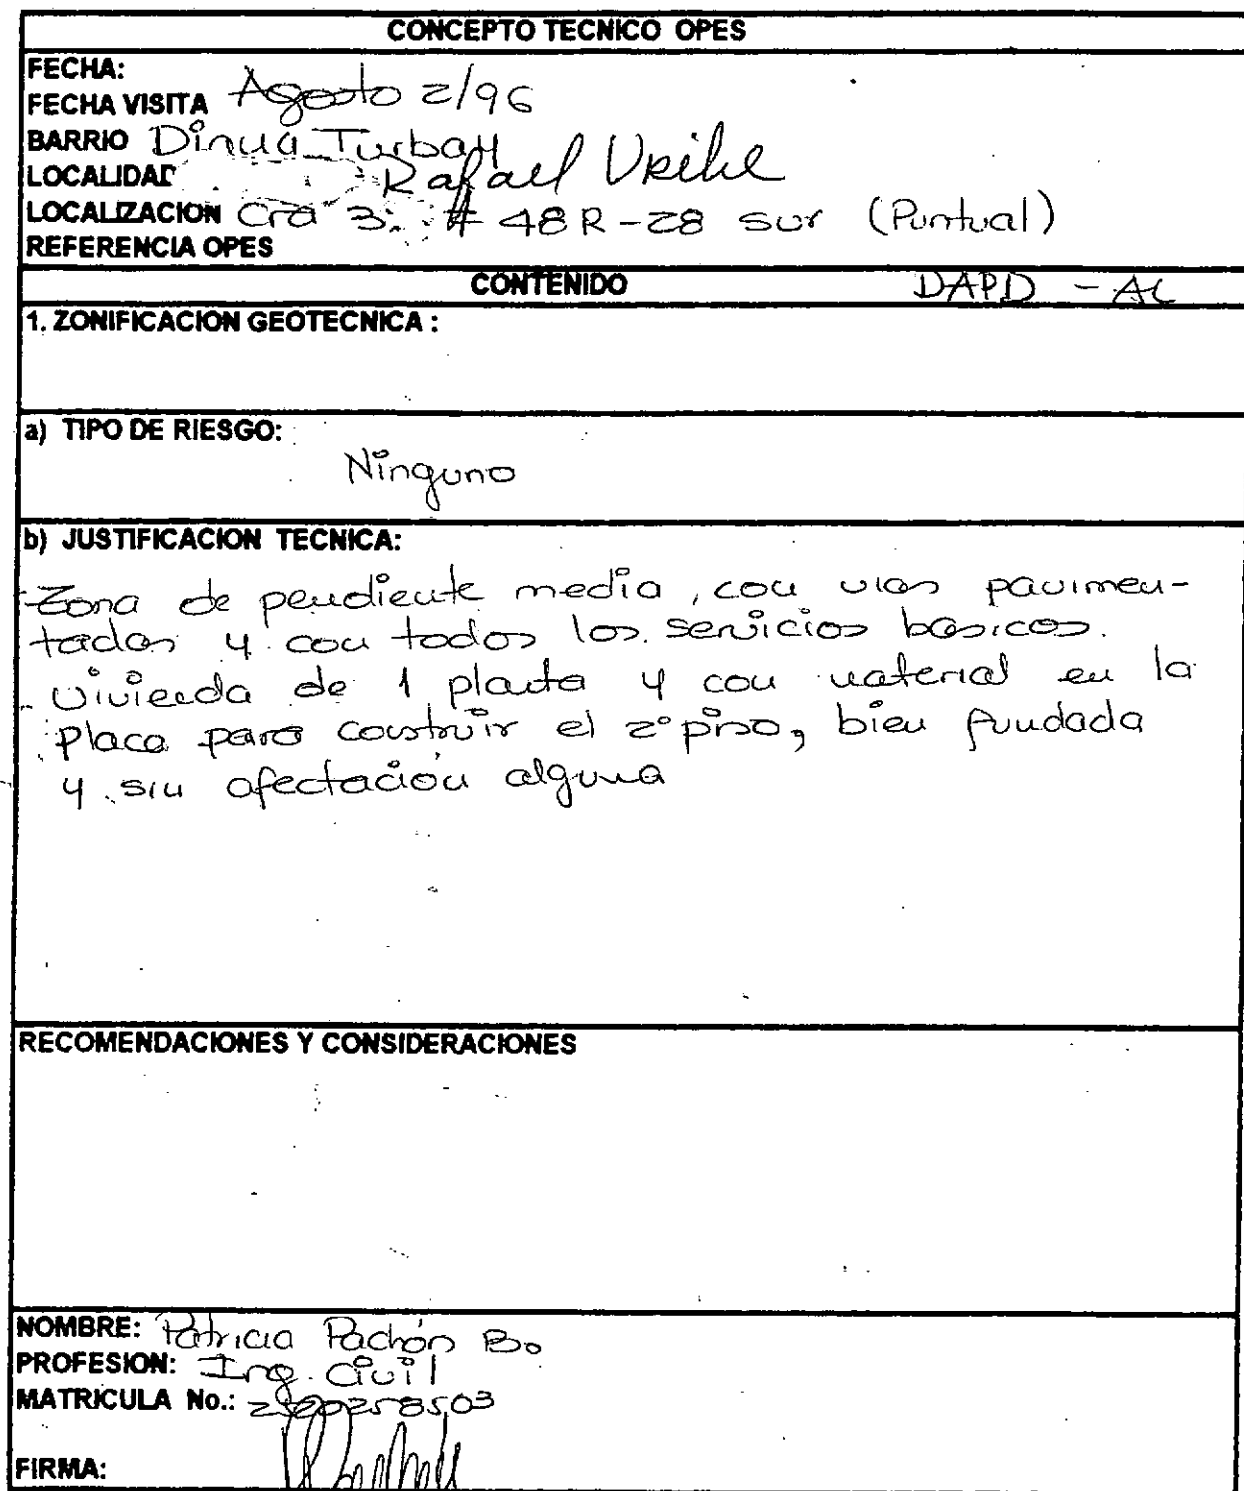 CONCEPTO TECNICO OPES
FECHA:
FECHA VISITA Agosto 2/96
BARRIO Dinua Turbay
LOCALIDAD Rafael Uribe
LOCALIZACION Cra 3. # 48R-28 sur (Puntual)
REFERENCIA OPES
CONTENIDO DAPD - AL
1. ZONIFICACION GEOTECNICA :
a) TIPO DE RIESGO:
Ninguno
b) JUSTIFICACION TECNICA:
Zona de pendiente media, con vias pavimen-
tadas y con todos los servicios basicos.
Vivienda de 1 planta y con material en la
placa para construir el 2° piso, bien fundada
y sin afectación alguna
RECOMENDACIONES Y CONSIDERACIONES
NOMBRE: Patricia Pachón B.
PROFESION: Ing. Civil
MATRICULA No.:
FIRMA: